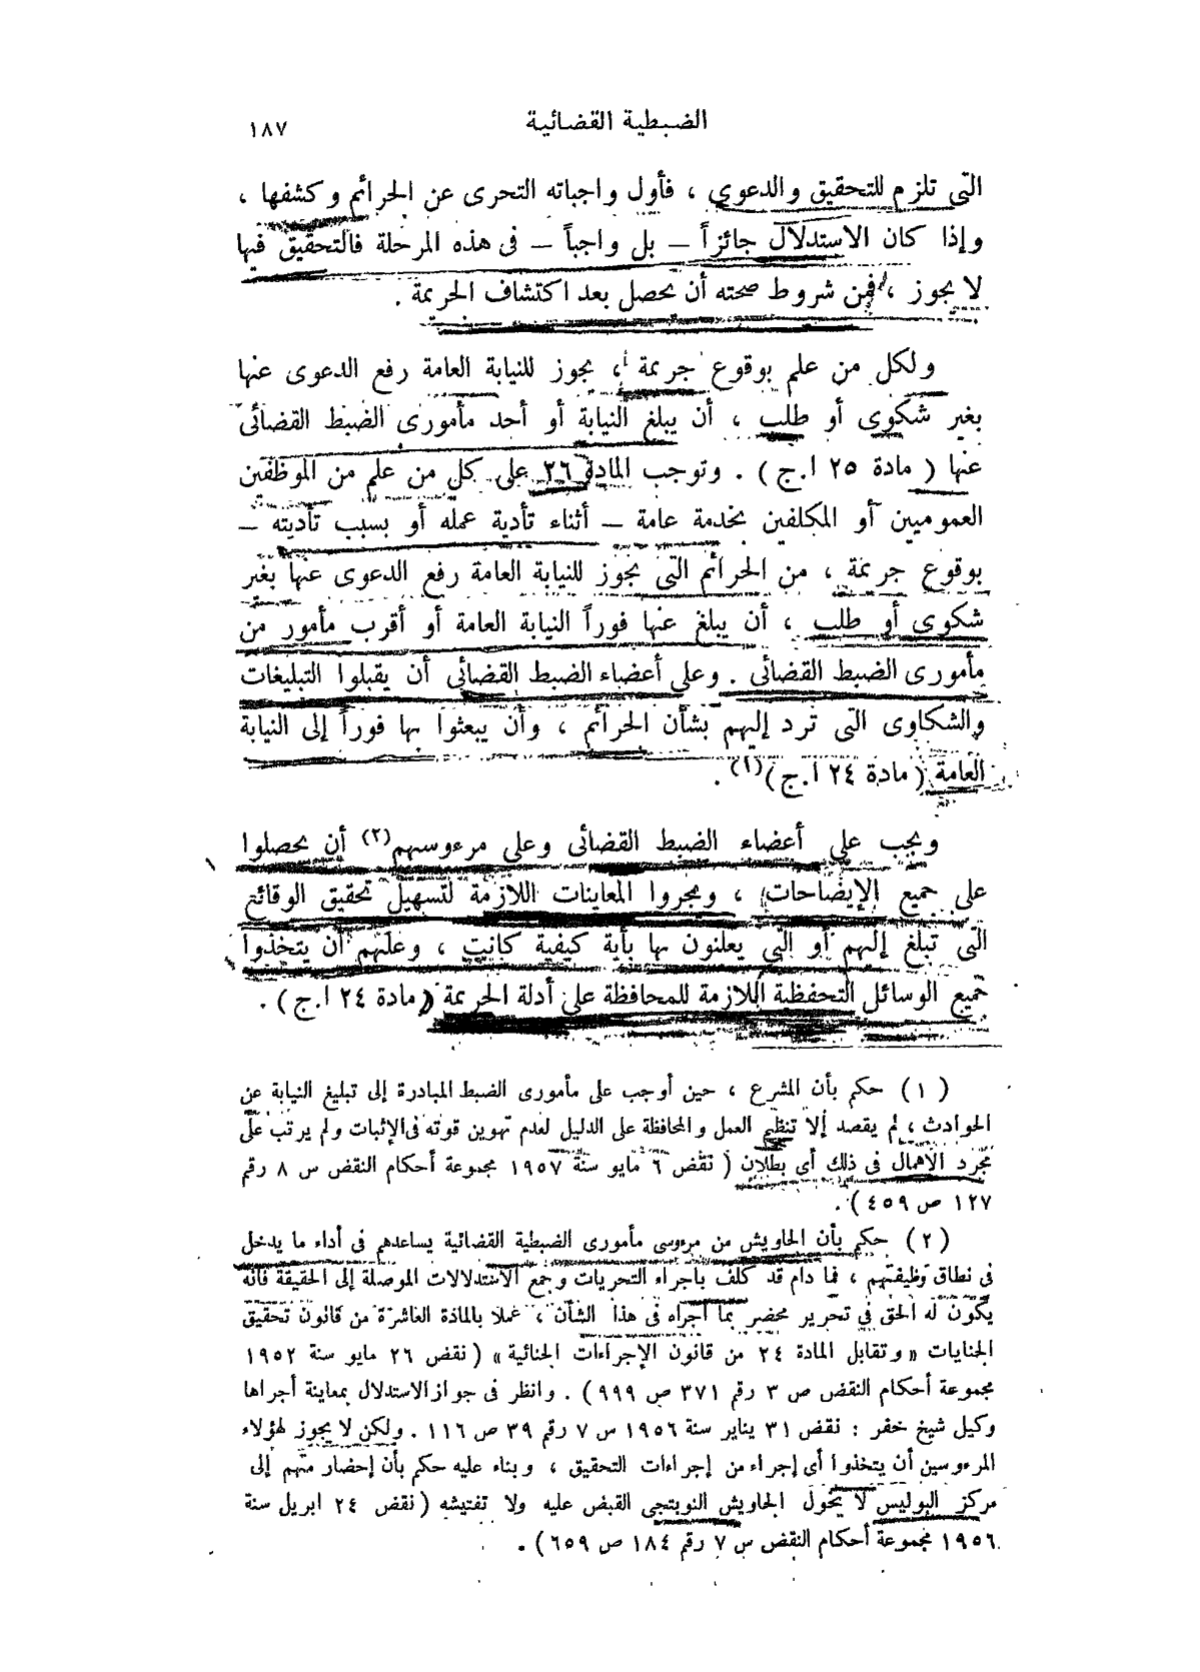 الضبطية القضائية ١٨٧
التى تلزم للتحقيق والدعوى ، فأول واجباته التحرى عن الجرائم وكشفها ،
وإذا كان الاستدلال جائزاً – بل واجباً – فى هذه المرحلة فالتحقيق فيها
لا يجوز ، فمن شروط صحته أن يحصل بعد اكتشاف الجريمة .
ولكل من علم بوقوع جريمة ، يجوز للنيابة العامة رفع الدعوى عنها
بغير شكوى أو طلب ، أن يبلغ النيابة أو أحد مأمورى الضبط القضائى
عنها ( مادة ٢٥ ا.ج ) . وتوجب المادة ٢٦ على كل من علم من الموظفين
العموميين أو المكلفين بخدمة عامة – أثناء تأدية عمله أو بسبب تأديته –
بوقوع جريمة ، من الجرائم التى يجوز للنيابة العامة رفع الدعوى عنها بغير
شكوى أو طلب ، أن يبلغ عنها فوراً النيابة العامة أو أقرب مأمور من
مأمورى الضبط القضائى . وعلى أعضاء الضبط القضائى أن يقبلوا التبليغات
والشكاوى التى ترد إليهم بشأن الجرائم ، وأن يبعثوا بها فوراً إلى النيابة
العامة ( مادة ٢٤ ا.ج )(١) .
ويجب على أعضاء الضبط القضائى وعلى مرءوسيهم(٢) أن يحصلوا
على جميع الإيضاحات ، ويجروا المعاينات اللازمة لتسهيل تحقيق الوقائع
التى تبلغ إليهم أو التى يعلنون بها بأية كيفية كانت ، وعليهم أن يتخذوا
جميع الوسائل التحفظية اللازمة للمحافظة على أدلة الجريمة ( مادة ٢٤ ا.ج ) .
( ١ ) حكم بأن المشرع ، حين أوجب على مأمورى الضبط المبادرة إلى تبليغ النيابة عن
الحوادث ، لم يقصد إلا تنظيم العمل والمحافظة على الدليل لعدم تهوين قوته فى الإثبات ولم يرتب على
مجرد الاهمال فى ذلك أى بطلان ( نقض ٦ مايو سنة ١٩٥٧ مجموعة أحكام النقض س ٨ رقم
١٢٧ ص ٤٥٩ ) .
( ٢ ) حكم بأن الجاويش من مرءوسى مأمورى الضبطية القضائية يساعدهم فى أداء ما يدخل
فى نطاق وظيفتهم ، فما دام قد كلف باجراء التحريات وجمع الاستدلالات الموصلة إلى الحقيقة فانه
يكون له الحق فى تحرير محضر بما أجراه فى هذا الشأن ، عملا بالمادة العاشرة من قانون تحقيق
الجنايات « وتقابل المادة ٢٤ من قانون الإجراءات الجنائية » ( نقض ٢٦ مايو سنة ١٩٥٢
مجموعة أحكام النقض ص ٣ رقم ٣٧١ ص ٩٩٩ ) . وانظر فى جواز الاستدلال بمعاينة أجراها
وكيل شيخ خفر : نقض ٣١ يناير سنة ١٩٥٦ س ٧ رقم ٣٩ ص ١١٦ . ولكن لا يجوز لهؤلاء
المرءوسين أن يتخذوا أى إجراء من إجراءات التحقيق ، وبناء عليه حكم بأن إحضار متهم إلى
مركز البوليس لا يخول الجاويش النوبتجى القبض عليه ولا تفتيشه ( نقض ٢٤ ابريل سنة
١٩٥٦ مجموعة أحكام النقض س ٧ رقم ١٨٤ ص ٦٥٩ ) .